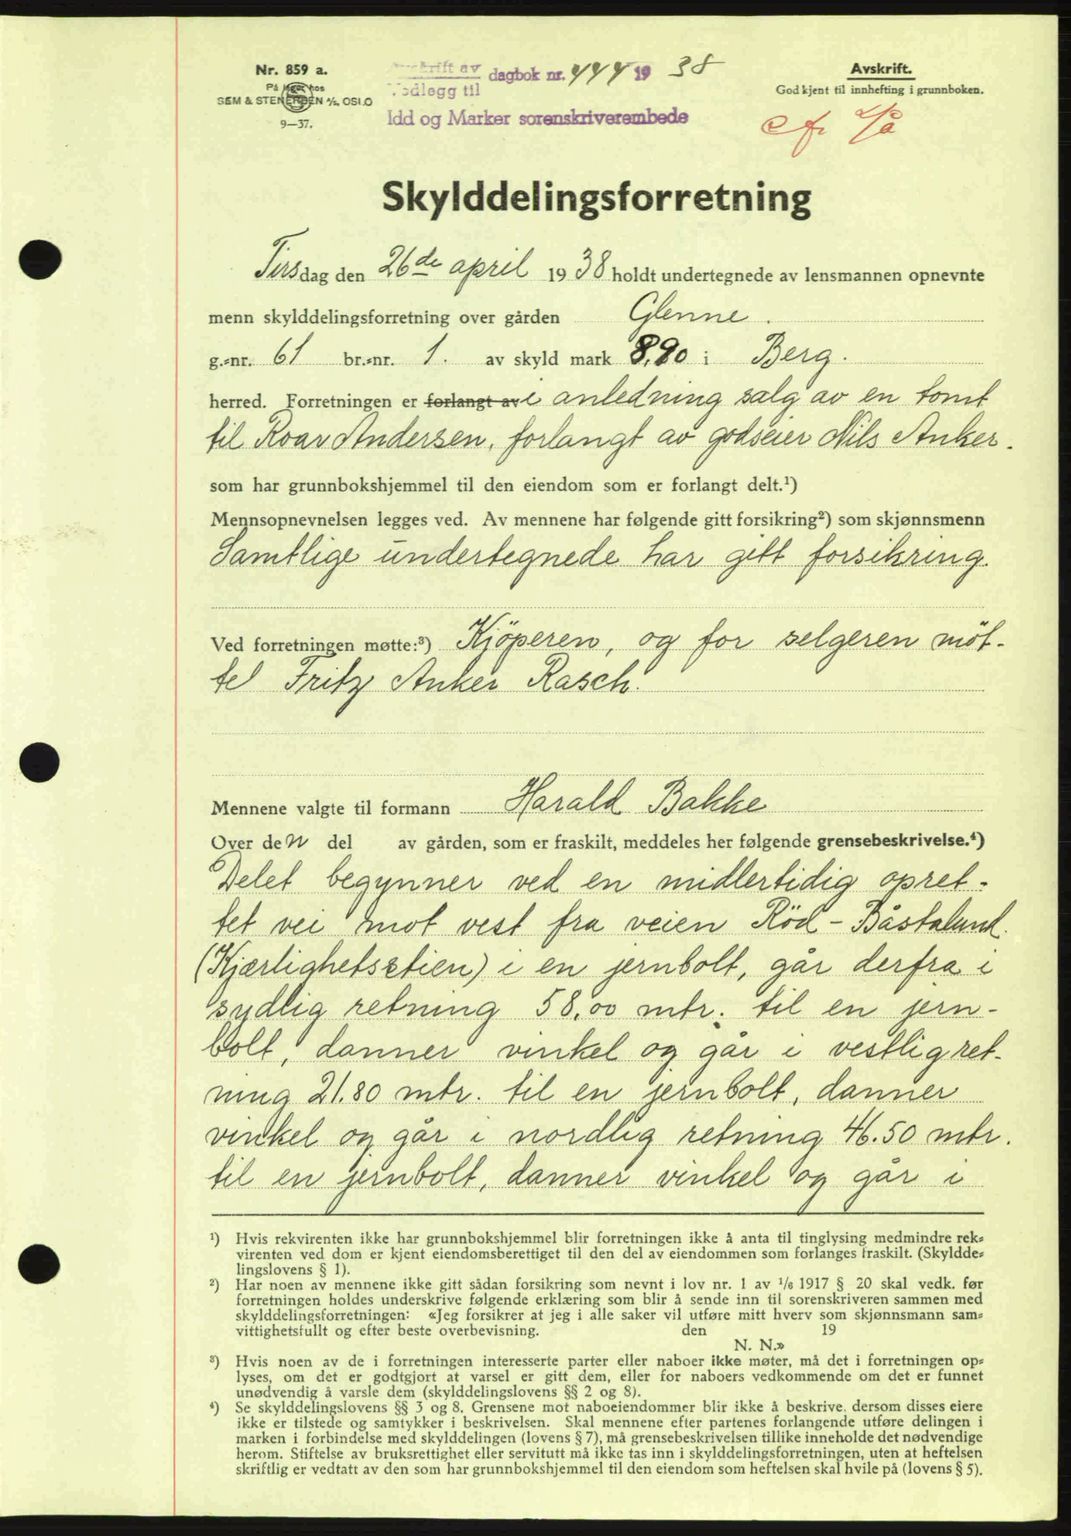 Nr. 859 a.
På lager hos
SEM & STENERSEN A/S, OSLO
9—37.
Avskrift av dagbok nr. 444 19 38
Vedlegg til
Idd og Marker sorenskriverembede
Avskrift.
Godkjent til innhefting i grunnboken.
Skylddelingsforretning
Tirsdag den 26de april 1938 holdt undertegnede av lensmannen opnevnte
menn skylddelingsforretning over gården Glenne.
g.-nr. 61 br.-nr. 1. av skyld mark 8,90 i Berg.
herred. Forretningen er forlangt av i anledning salg av en tomt
til Roar Andersen, forlangt av godseier Nils Anker.
som har grunnbokshjemmel til den eiendom som er forlangt delt.¹)
Mennsopnevnelsen legges ved. Av mennene har følgende gitt forsikring²) som skjønnsmenn
Samtlige undertegnede har gitt forsikring.
Ved forretningen møtte:³) Kjöperen, og for selgeren möt-
tel Fritz Anker Rasch.
Mennene valgte til formann Harald Bakke
Over den del av gården, som er fraskilt, meddeles her følgende grensebeskrivelse.⁴)
Delet begynner ved en midlertidig opret-
tet vei mot vest fra veien Röd - Båstalund.
(Kjærlighetsstien) i en jernbolt, går derfra i
sydlig retning 58,00 mtr. til en jern-
bolt, danner vinkel og går i vestlig ret-
ning 21.80 mtr. til en jernbolt, danner
vinkel og går i nordlig retning 46.50 mtr.
til en jernbolt, danner vinkel og går i
¹) Hvis rekvirenten ikke har grunnbokshjemmel blir forretningen ikke å anta til tinglysing medmindre rek-
virenten ved dom er kjent eiendomsberettiget til den del av eiendommen som forlanges fraskilt. (Skyldde-
lingslovens § 1).
²) Har noen av mennene ikke gitt sådan forsikring som nevnt i lov nr. 1 av 1/6 1917 § 20 skal vedk. før
forretningen holdes underskrive følgende erklæring som blir å sende inn til sorenskriveren sammen med
skylddelingsforretningen: «Jeg forsikrer at jeg i alle saker vil utføre mitt hverv som skjønnsmann sam-
vittighetsfullt og efter beste overbevisning. den 19
N. N.»
³) Hvis noen av de i forretningen interesserte parter eller naboer ikke møter, må det i forretningen op-
lyses, om det er godtgjort at varsel er gitt dem, eller for naboers vedkommende om det er funnet
unødvendig å varsle dem (skylddelingslovens §§ 2 og 8).
⁴) Se skylddelingslovens §§ 3 og 8. Grensene mot naboeiendommer blir ikke å beskrive, dersom disses eiere
ikke er tilstede og samtykker i beskrivelsen. Skal mennene efter partenes forlangende utføre delingen i
marken i forbindelse med skylddelingen (lovens § 7), må grensebeskrivelsen tillike inneholde det nødvendige
herom. Stiftelse av bruksrettighet eller servitutt må ikke tas inn i skylddelingsforretningen, uten at heftelsen
skriftlig er vedtatt av den som har grunnbokshjemmel til den eiendom som heftelsen skal hvile på (lovens § 5).